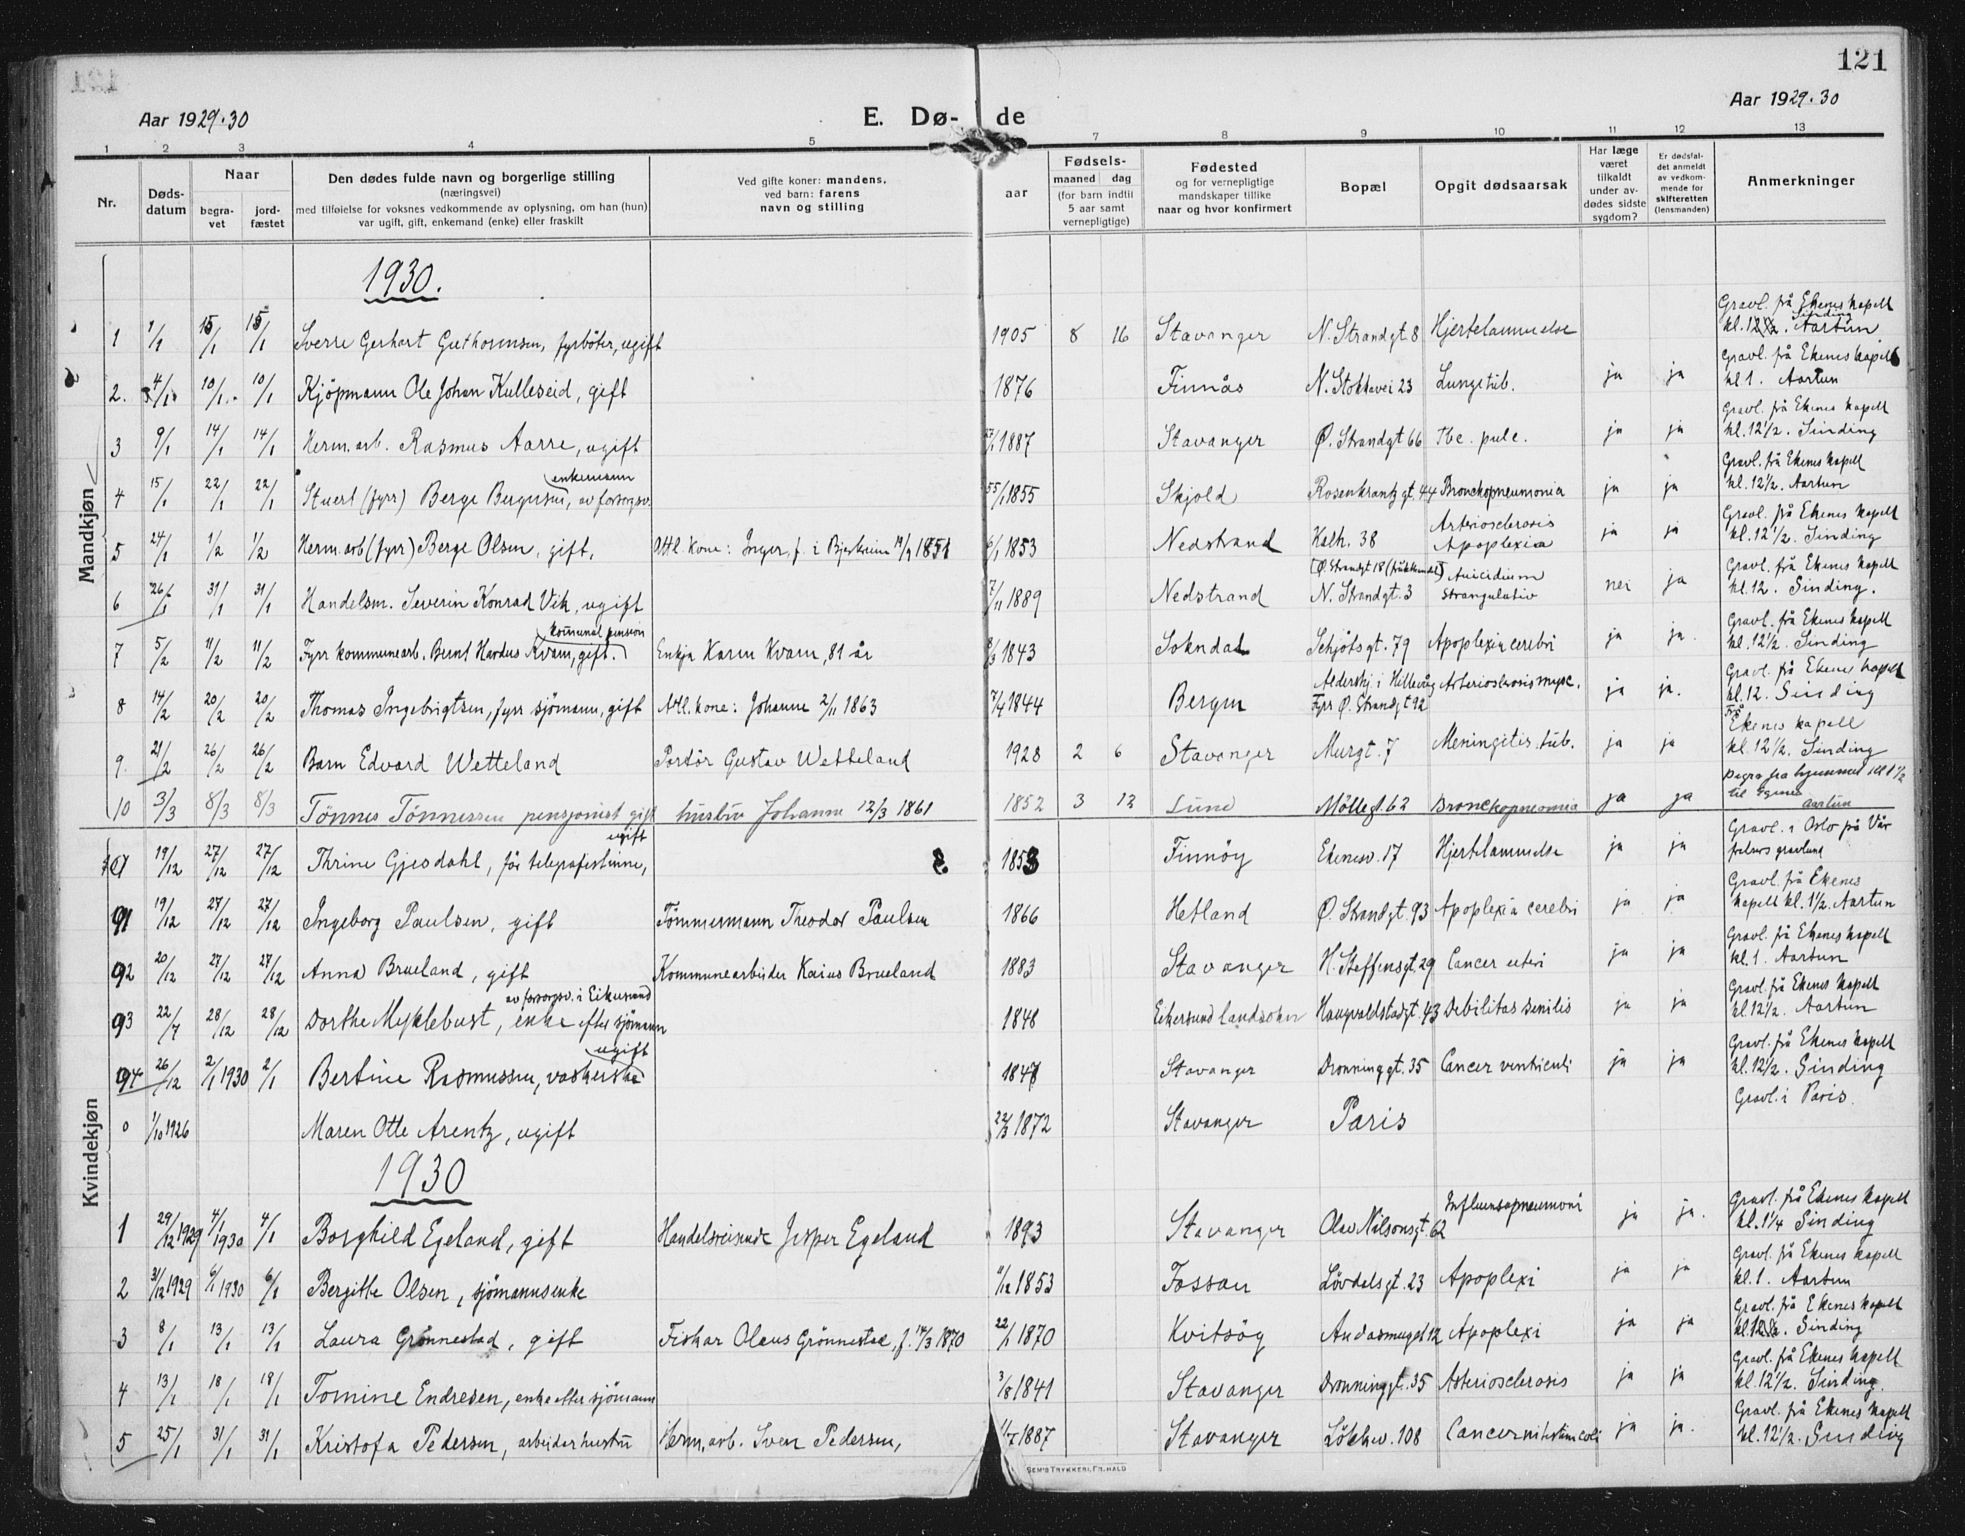 121
Aar 1929.30
E. Dø- de
Aar 1929.30
1 2 3 4 5 7 8 9 10 11 12 13
Nr.
Døds-datum
Naar
begra-vet
jord-fæstet
Den dødes fulde navn og borgerlige stilling
(næringsvei)
med tilføielse for voksnes vedkommende av oplysning, om han (hun)
var ugift, gift, enkemand (enke) eller fraskilt
Ved gifte koner: mandens,
ved barn: farens
navn og stilling
aar
Fødsels-
maaned dag
(for barn indtil
5 aar samt
vernepligtige)
Fødested
og for vernepligtige
mandskaper tillike
naar og hvor konfirmert
Bopæl
Opgit dødsaarsak
Har læge
været
tilkaldt
under av-
dødes sidste
sygdom?
Er dødsfal-
det anmeldt
av vedkom-
mende for
skifteretten
(lensmanden)
Anmerkninger
Mandkjøn
1930.
1 1/1 15/1 15/1 Sverre Gerhart Guthormsen, fyrbøter, ugift 1905 8 16 Stavanger N. Strandgt 8 Hjertelammelse Gravl. frå Ekenes kapell kl. Sinding Aartun
2. 4/1 10/1 10/1 Kjøpmann Ole Johan Kulleseid, gift 1876 Finnås N. Stokkavei 23 Lungetub. ja ja Gravl. frå Ekenes kapell kl 1. Aartun
3 9/1 14/1 14/1 Herm. arb. Rasmus Aarre, ugift 1887 Stavanger Ø. Strandgt 66 Tbc. pulc. ja ja Gravl. frå Ekenes kapell kl. 12 1/2. Sinding
4 15/1 22/1 22/1 Stuert (fyrr) Berge Bergesen, enkemann av forsorgsv. 1855 Skjold Rosenkrantzgt. 44 Bronchopneumonia ja ja Gravl. frå Ekenes kapell kl. 12 1/2. Aartun
5 24/1 1/2 1/2 Herm. arb (fyrr) Berge Olsen, gift. Attl. kone: Inger, f. i Bjerkreim 19/9 1851 6/1 1853 Nedstrand Kalh. 38 Arteriosclerosis Apoplexia ja ja Gravl. frå Ekenes kapell kl. 12 1/2. Sinding
6 26/1 31/1 31/1 Handelsm. Severin Konrad Vik, ugift 7/11 1889 Nedstrand Ø. Strandgt 18 N. Strandgt. 3 Suicidium Strangulatio nei ja Gravl. frå Ekenes kapell kl. 12. Sinding.
7 5/2 11/2 11/2 Fyrr kommunearb. Bernt Hardus Kvam, gift. komunal pension Enkja Karen Kvam, 81 år 8/3 1843 Sokndal Schjøtsgt. 79 Apoplexia cerebri ja ja. Gravl. frå Ekenes kapell kl. 12 1/2. Sinding
8 14/2 20/2 20/2 Thomas Ingebrigtsen, fyrr sjömann, gift Attl. kone: Johanne 2/11 1863 7/4 1844 Bergen Aldershj i Hillevåg Fyrr Ø. Strandgt 92 Arteriosclerosis myoc. ja ja. Gravl. frå Ekenes kapell kl. 12. Sinding
9. 21/2 26/2 26/2 Barn Edvard Wetteland Portör Gustav Wetteland 1928 2 6 Stavanger Murgt. 7 Meningitis tub. ja ja Frå Ekenes kapell kl. 12 1/2. Sinding
10 3/3 8/3 8/3 Tönnes Tönnessen pensjonist gift hustru Johanne 12/3 1861 1852 3 12 Lund Möllegt. 62 Bronchopneumonia ja ja Begra fra hjemmet til Egenes Aartun
Kvindekjøn
90 19/12 27/12 27/12 Thrine Gjesdahl, för telegrafistinne, ugift 1853 Finnöy Ekenesv. 17 Hjertelammelse ja ja Gravl. i Oslo på Vår frelsers gravlund
91 19/12 27/12 27/12 Ingeborg Paulsen, gift Tömmermann Theodor Paulsen 1866 Hetland Ø. Strandgt. 93 Apoplexia cerebri ja ja Gravl. frå Ekenes kapell kl. 1 1/2. Aartun
92 20/12 27/12 27/12 Anna Brueland, gift Kommunearbeider Kaius Brueland 1883 Stavanger H. Steffensgt. 29 Cancer uteri ja ja Gravl. frå Ekenes kapell kl. 1. Aartun
93 22/7 28/12 28/12 Dorthe Myklebust, enke efter sjömann av forsorgsv. i Eikesund 1848 Eikersund landsokn Haugvaldstadgt. 43 Debilitas senilis ja ja Gravl. frå Ekenes kapell kl. 12 1/2. Aartun
94 26/12 2/1 1930 2/1 Bertine Rasmussen, vaskerske ugift 1847 Stavanger Dronninggt. 35 Cancer ventriculi ja ja Gravl. frå Ekenes kapell kl. 12 1/2. Sinding
0 1/10 1926 Maren Otte Arentz, ugift 22/3 1872 Stavanger Paris Gravl. i Paris.
1930
1 29/12 1929 4/1 1930 4/1 Borghild Egeland, gift Handelsreisende Jesper Egeland 1893 Stavanger Olav Nilsonsgt. 62 Influensapneumoni ja ja. Gravl. frå Ekenes kapell kl. 1 1/4 Sinding
2 31/12 1929 6/1 1930 6/1 Bergitte Olsen, sjömannsenke 9/12 1853 Fossan Lövdalsgt. 23 Apoplexi ja ja Gravl. frå Ekenes kapell kl. 1. Aartun
3 8/1 13/1 13/1 Laura Grönnestad, gift Fiskar Olaus Grönnestad, f. 14/3 1870 22/1 1870 Kvitsöy Andasmuget 12 Apoplexi ja ja Gravl. frå Ekenes kapell Sinding
4 13/1 18/1 18/1 Tomine Endresen, enke efter sjömann 3/8 1841 Stavanger Dronninggt. 35 Arteriosclerosis ja ja Gravl. frå Ekenes kapell kl. 12 1/2. Sinding.
5 25/1 31/1 31/1 Kristofa Pedersen, arbeiderhustru Herm. arb. Sven Pedersen, 1/7 1887 Stavanger Lökkev. 108 ja ja. Gravl. frå Ekenes kapell kl. 12 1/2. Sinding
SEM'S TRYKKERI, FR. HALD